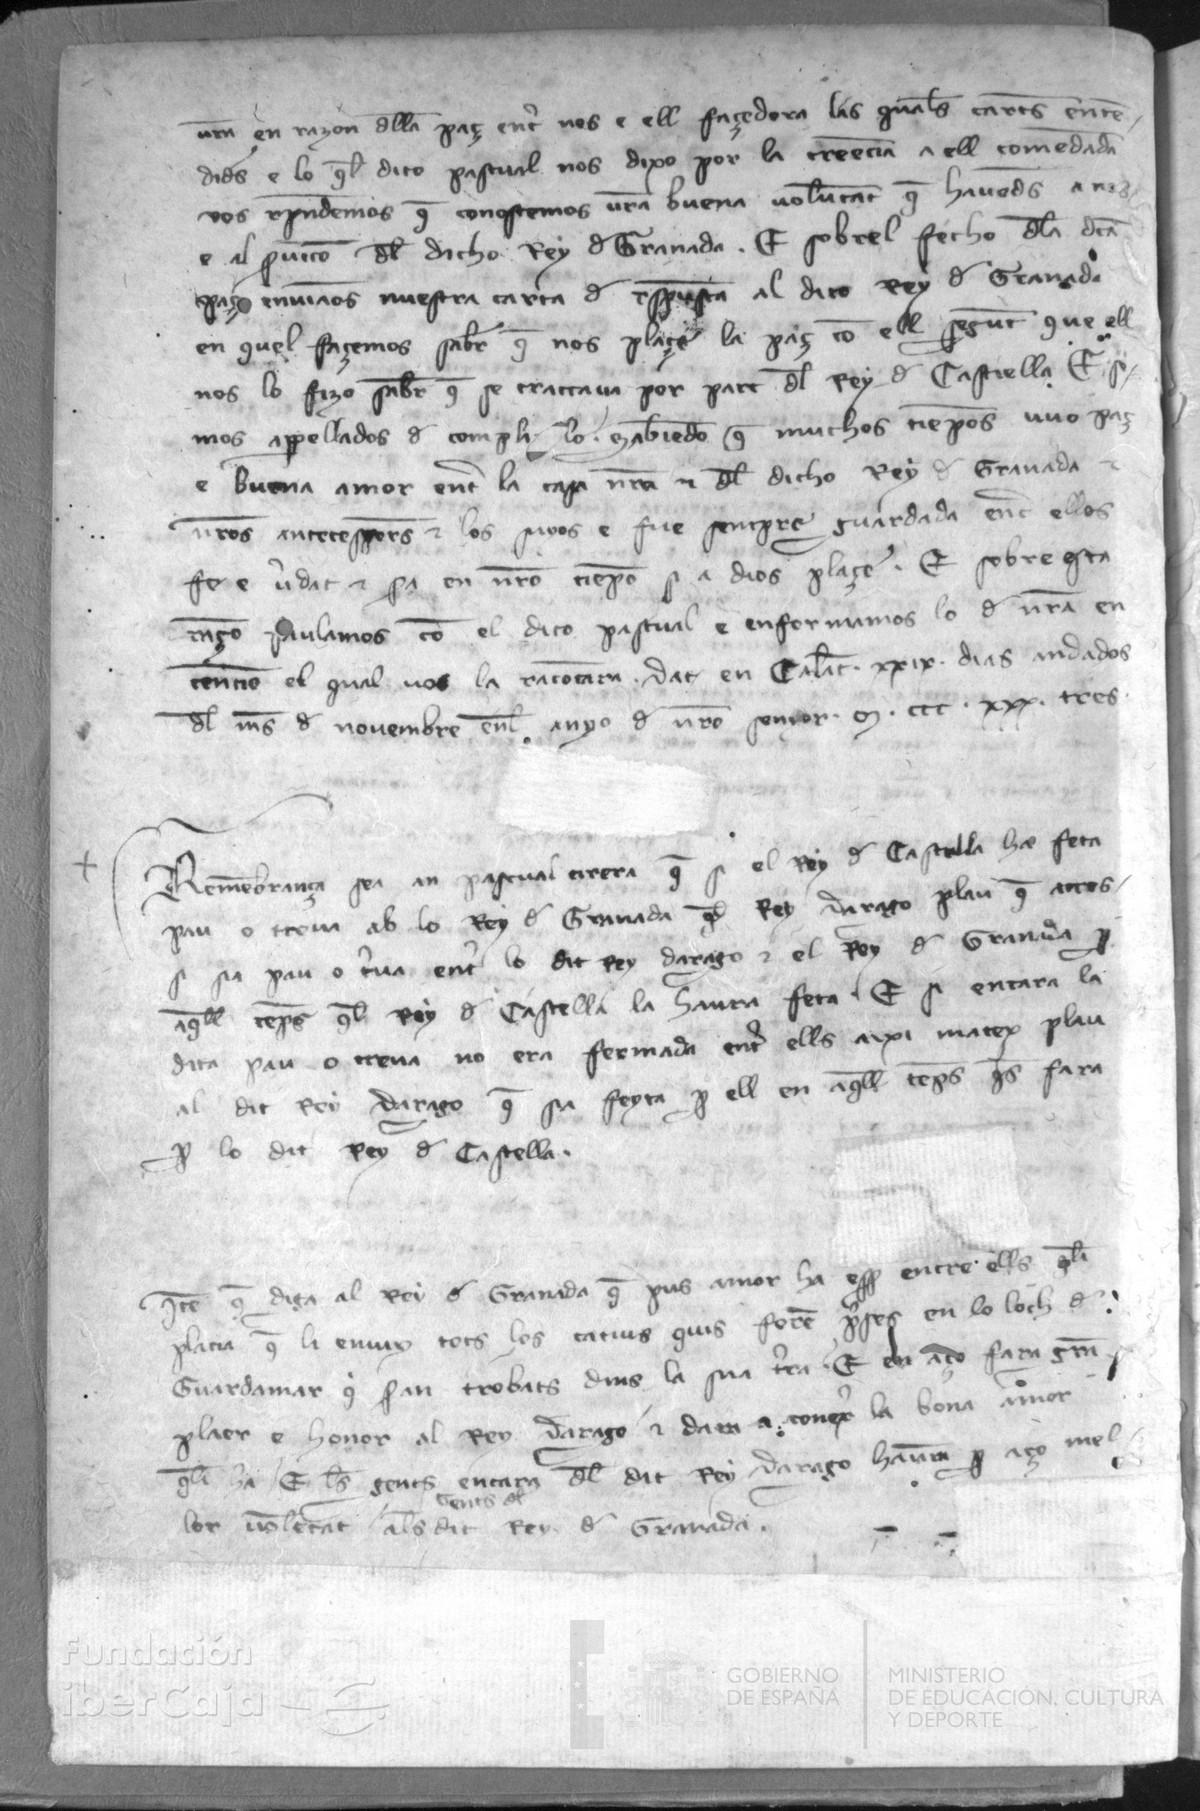 vr̃a en razon dll̃a paç entr̃ nos e ell façedera las quals̃ cartas enten-
didas̃ e lo q̃l dito pascual nos dixo por la creẽcia a ell comẽdada
vos rp̃ndemos q̃ conoscemos vr̃a buena volũtat q̃ havedes̃ a nos
e al ser̃vicio dl̃ dicho Rey d̃ Granada. E sobrel fecho dl̃a dc̃a
paç enviamos nuestra carta d̃ rsp̃uesta al dito Rey d̃ Granada
en quel façemos sabr̃ q̃ nos plaçe la paç cõ ell segunt que ell
nos lo fizo sabr̃ q̃ se tractava por part dl̃ Rey d̃ Castiella. E so-
mos appellados d̃ complir lo. Sabiẽdo q̃ muchos tiẽpos uvo paç
e buena amor entr̃ la casa nr̃a τ dl̃ dicho Rey d̃ Granada τ
nr̃os antecessores̃ τ los suyos e fue sempre guardada entr̃ ellos
fe e v̾dat τ sera en nr̃o tiẽpo si a dios plaçe. E sobre esta
raçõ favlamos cõ el dito pascual e enformamos lo d̃ nr̃a en
tenciõ el qual vos la racõtara. Dat en Calat̃. xxix. dias andados
dl̃ mes̃ d̃ novembre enl̃ anyo d̃ nr̃o senyor. M. ccc. xxx. tres.
Remẽbrança sea an pascual cirera q̃ si el Rey d̃ Castella ha feta
pau o treua ab lo Rey d̃ Granada ql̃ Rey darago plau q̃ aites-
si sia pau o tr̃eua entr̃ lo dit Rey darago τ el Rey d̃ Granada p̃
aq̃ll temp̃s q̃l Rey d̃ Castella la haura feta. E si encara la
dita pau o treua no era fermada entr̃ ells axi matex plau
al dit Rey darago q̃ sia feyta p̃ ell en aq̃ll temp̃s q̃s fara
p̃ lo dit Rey d̃ Castella.
Itẽ q̃ diga al Rey d̃ Granada q̃ pus amor ha esser entre ells q̃li
placia q̃ li enviy tots los catius quis forẽ p̃ses en lo loch d̃
Guardamar q̃ sian trobats dins la sua tr̃ra. E en aço fara grã
plaer e honor al Rey darago τ dara a conex̃er la bona amor
q̃li ha E les̃ gents encara dl̃ dit Rey darago haurã p̃ aço mel-
lor volũtat als gents dl̃ dit Rey d̃ Granada.
Fundación
iberCaja
GOBIERNO
DE ESPAÑA
MINISTERIO
DE EDUCACIÓN, CULTURA
Y DEPORTE